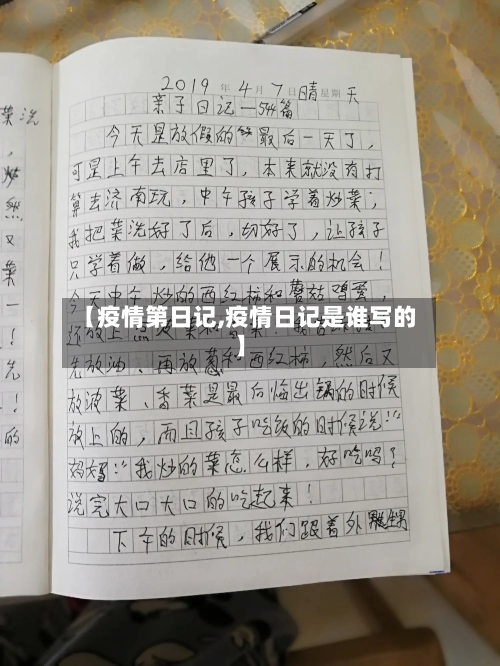 2019年4月7日晴星期天
亲子日记—544篇
今天是放假的最后一天了，
可是上午去店里了，本来就没有打
算去济南玩，中午孩子学着炒菜；
我把菜洗好了后，切好了，让孩子
只学着做，给他一个展示的机会！
今天中午炒的西红柿和蘑菇鸡蛋，
【疫情第日记,疫情日记是谁写的
】
还放上
先放油、再放葱和西红柿，然后又
放菠菜、香菜是最后临出锅的时候
放上的，而且孩子吃饭的时候说："
妈妈："我炒的菜怎么样，好吃吗？
说完大口大口的吃起来！
下午的时候，我们跟着外
菜洗
，
炒
然
又
菜
！
先
！
的